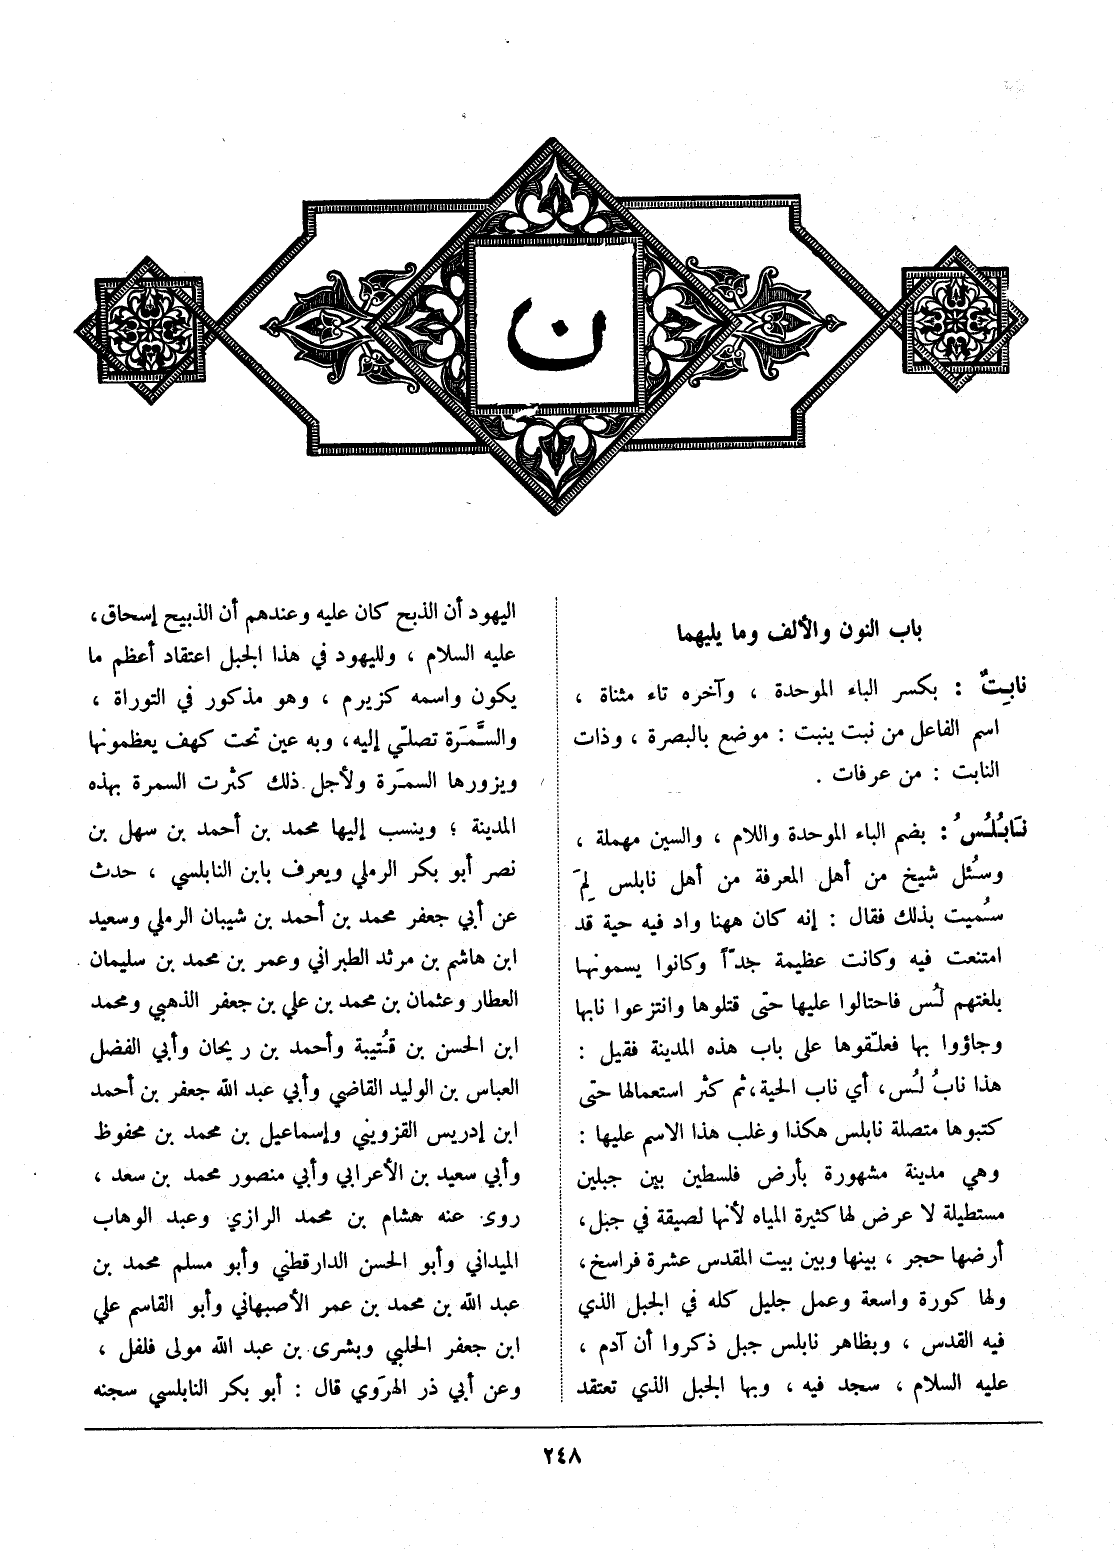 ن
باب النون والألف وما يليهما
نابِتٌ : بكسر الباء الموحدة ، وآخره تاء مثناة ،
اسم الفاعل من نبت ينبت : موضع بالبصرة ، وذات
النابت : من عرفات .
نَابُلُسُ : بضم الباء الموحدة واللام ، والسين مهملة ،
وسُئل شيخ من أهل المعرفة من أهل نابلس لِمَ
سُميت بذلك فقال : إنه كان ههنا واد فيه حية قد
امتنعت فيه وكانت عظيمة جدّاً وكانوا يسمونها
بلغتهم لُس فاحتالوا عليها حتى قتلوها وانتزعوا نابها
وجاؤوا بها فعلّقوها على باب هذه المدينة فقيل :
هذا نابُ لُس، أي ناب الحية، ثم كثر استعمالها حتى
كتبوها متصلة نابلس هكذا وغلب هذا الاسم عليها :
وهي مدينة مشهورة بأرض فلسطين بين جبلين
مستطيلة لا عرض لها كثيرة المياه لأنها لصيقة في جبل،
أرضها حجر ، بينها وبين بيت المقدس عشرة فراسخ،
ولها كورة واسعة وعمل جليل كله في الجبل الذي
فيه القدس ، وبظاهر نابلس جبل ذكروا أن آدم ،
عليه السلام ، سجد فيه ، وبها الجبل الذي تعتقد
اليهود أن الذبح كان عليه وعندهم أن الذبيح إسحاق،
عليه السلام ، ولليهود في هذا الجبل اعتقاد أعظم ما
يكون واسمه كزيرم ، وهو مذكور في التوراة ،
والسَّمَرة تصلّي إليه، وبه عين تحت كهف يعظمونها
ويزورها السمَرة ولأجل ذلك كثرت السمرة بهذه
المدينة ؛ وينسب إليها محمد بن أحمد بن سهل بن
نصر أبو بكر الرملي ويعرف بابن النابلسي ، حدث
عن أبي جعفر محمد بن أحمد بن شيبان الرملي وسعيد
ابن هاشم بن مرثد الطبراني وعمر بن محمد بن سليمان
العطار وعثمان بن محمد بن علي بن جعفر الذهبي ومحمد
ابن الحسن بن قُتيبة وأحمد بن ريحان وأبي الفضل
العباس بن الوليد القاضي وأبي عبد الله جعفر بن أحمد
ابن إدريس القزويني وإسماعيل بن محمد بن محفوظ
وأبي سعيد بن الأعرابي وأبي منصور محمد بن سعد ،
روى عنه هشام بن محمد الرازي وعبد الوهاب
الميداني وأبو الحسن الدارقطني وأبو مسلم محمد بن
عبد الله بن محمد بن عمر الأصبهاني وأبو القاسم علي
ابن جعفر الحلبي وبشرى بن عبد الله مولى فلفل ،
وعن أبي ذر الهرَوي قال : أبو بكر النابلسي سجنه
٢٤٨